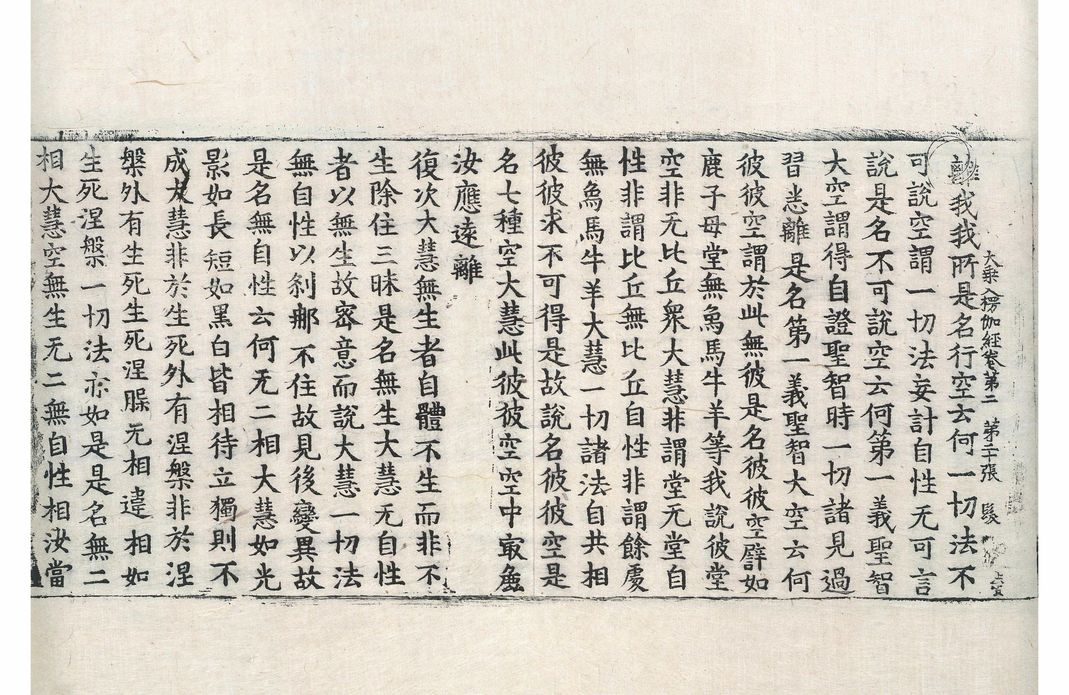 大乗入楞伽經卷第二 第 張 髮
離我我所是名行空云何一切法不
可說空謂一切法妄計自性无可言
說是名不可說空云何第一義聖智
大空謂得自證聖智時一切諸見過
習悉離是名第一義聖智大空云何
彼彼空謂於此無彼是名彼彼空辟如
鹿子母堂無象馬牛羊等我說彼堂
空非无比丘衆大慧非謂堂无堂自
性非謂比丘無比丘自性非謂餘處
無象馬牛羊大慧一切諸法自共相
彼彼求不可得是故說名彼彼空是
名七種空大慧此彼彼空空中㝡麁
汝應遠離
復次大慧無生者自體不生而非不
生除住三昧是名無生大慧无自性
者以無生故密意而說大慧一切法
無自性以刹那不住故見後變異故
是名無自性云何无二相大慧如光
影如長短如黑白皆相待立獨則不
成大慧非於生死外有涅槃非於涅
槃外有生死生死涅槃无相違相如
生死涅槃一切法亦如是是名無二
相大慧空無生无二無自性相汝當